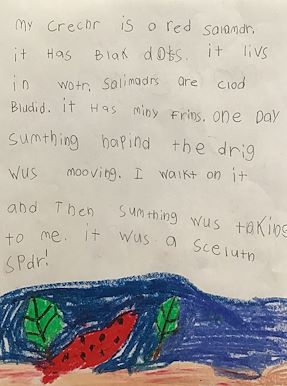 My crechr is a red salamdr.
it Has Blak dOts. it livs
in wotr. Salimadrs are clod
Bludid. it Has miny Frins. one Day
Sumthing hapind the drig
wus mooving. I walkt on it
and Then sumthing wus taKing
to me. it wus a Scelutn
SPdr!